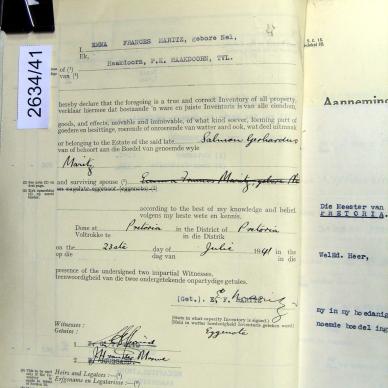 2634/41
I, EMMA FRANCES MARITZ, gebore Nel,
Ek,
of (¹) Haakdoorn, P.K. HAAKDOORN, TVL.
van (¹)
hereby declare that the foregoing is a true and correct Inventory of all property,
verklaar hiermee dat bostaande 'n ware en juiste Inventaris is van alle eiendom,
goods, and effects, movable and immovable, of what kind soever, forming part of
goedere en besittings, roerende of onroerende van watter aard ook, wat deel uitmaak
or belonging to the Estate of the said late Salmon Gerhardus
van of behoort aan die Boedel van genoemde wyle
Maritz
and surviving spouse (²)
according to the best of my knowledge and belief
volgens my beste wete en kennis.
Done at Pretoria in the District of Pretoria
Voltrokke te in die Distrik
on the 23ste day of Julie 1941 in the
op die dag van in die
presence of the undersigned two impartial Witnesses.
teenwoordigheid van die twee ondergetekende onpartydige getuies.
(Get.). E. F.
(State in what capacity Inventory is signed.)
Eggenote
Witnesses:
Getuies:
1
2
Heirs and Legatees:—(⁴)
Erfgename en Legatarisse:—(⁴)
Aanneming
Die Meester van
PRETORIA.
WelEd. Heer,
my in my hoedanig
noemde boedel ing